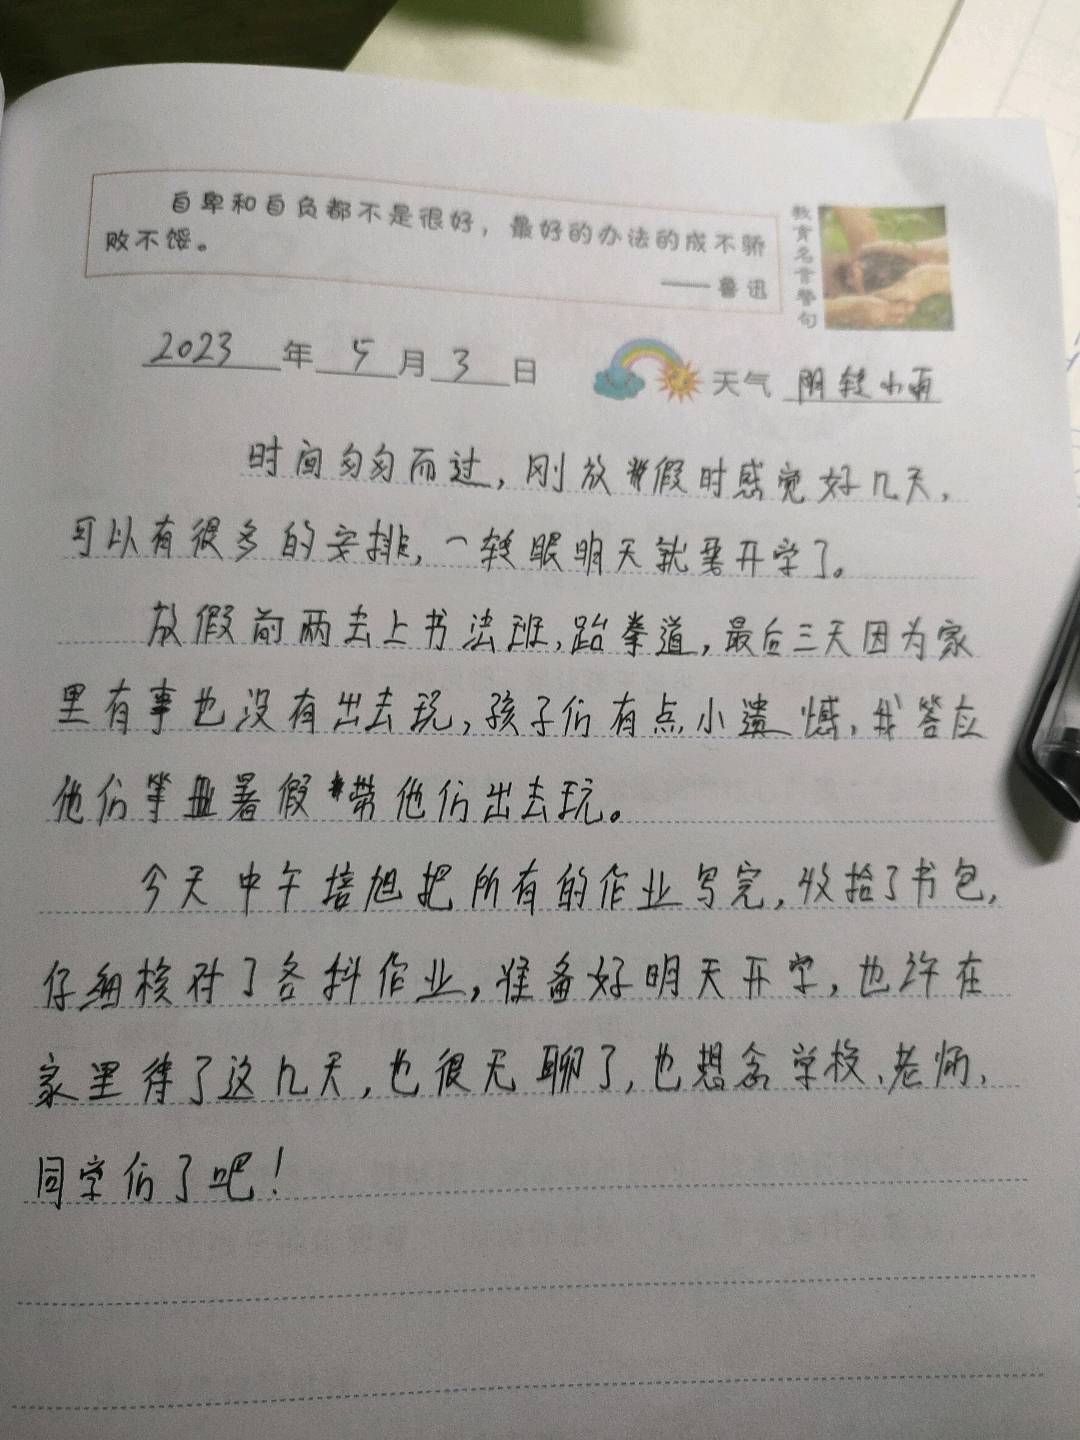 自卑和自负都不是很好，最好的办法的成不骄
败不馁。
——鲁迅
教育名言警句
2023年5月3日
天气 阴转小雨
时间匆匆而过，刚放假时感觉好几天，
可以有很多的安排，一转眼明天就要开学了。
放假前两去上书法班，跆拳道，最后三天因为家
里有事也没有出去玩，孩子们有点小遗憾，我答应
他们等暑假带他们出去玩。
今天中午培旭把所有的作业写完，收拾了书包，
仔细核对了各科作业，准备好明天开学，也许在
家里待了这几天，也很无聊了，也想念学校、老师、
同学们了吧！